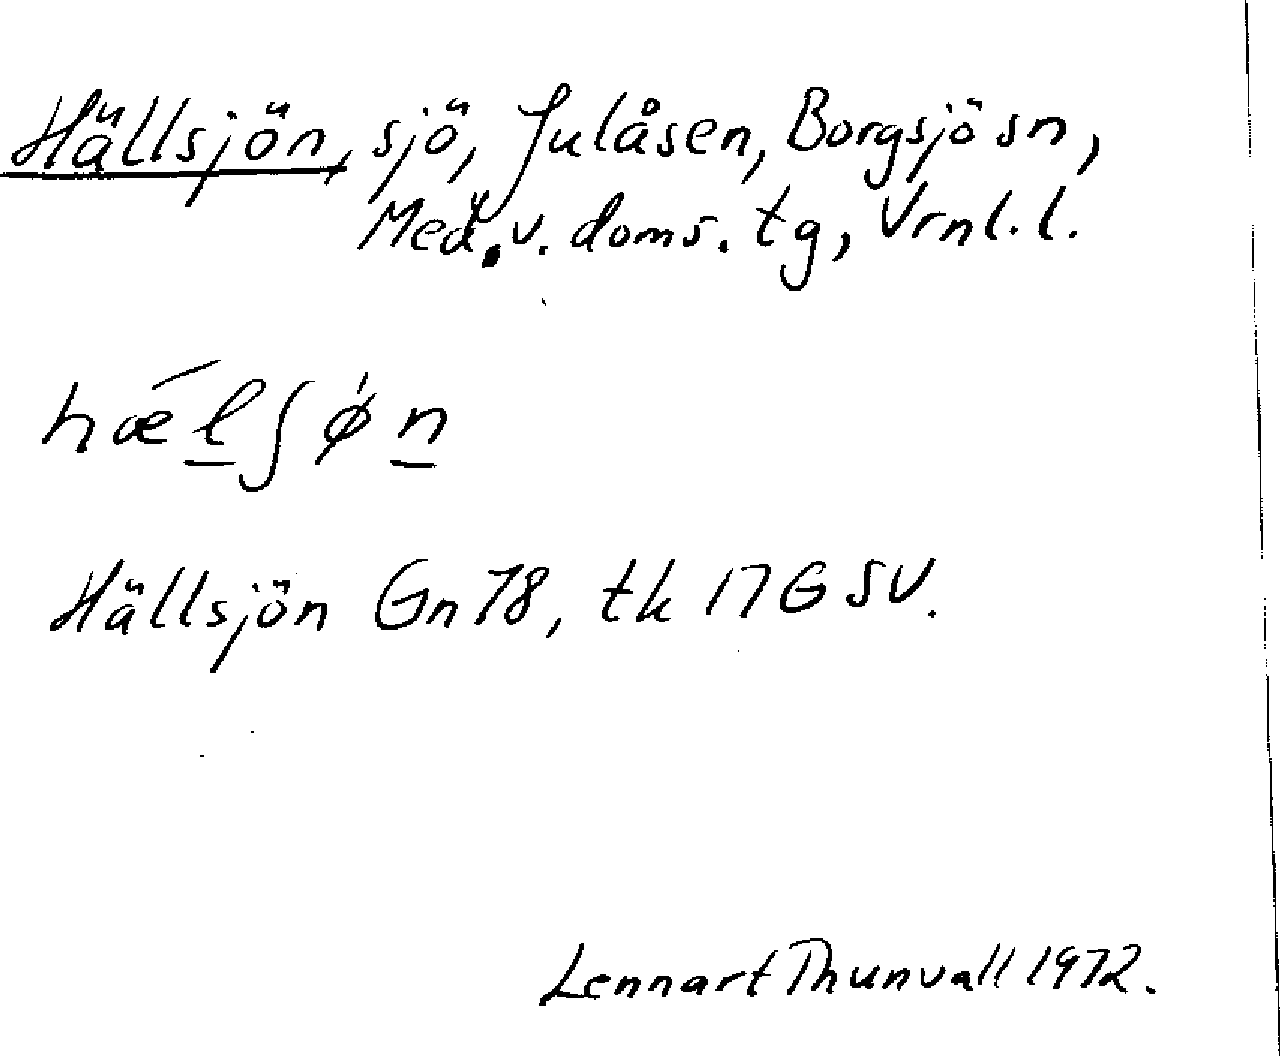 Hällsjön, sjö, Julåsen, Borgsjö sn,
Med. v. doms. tg, Vrnl. l.
hælʃøn
Hällsjön Gn78, tk 17G SV.
Lennart Thunvall 1972.